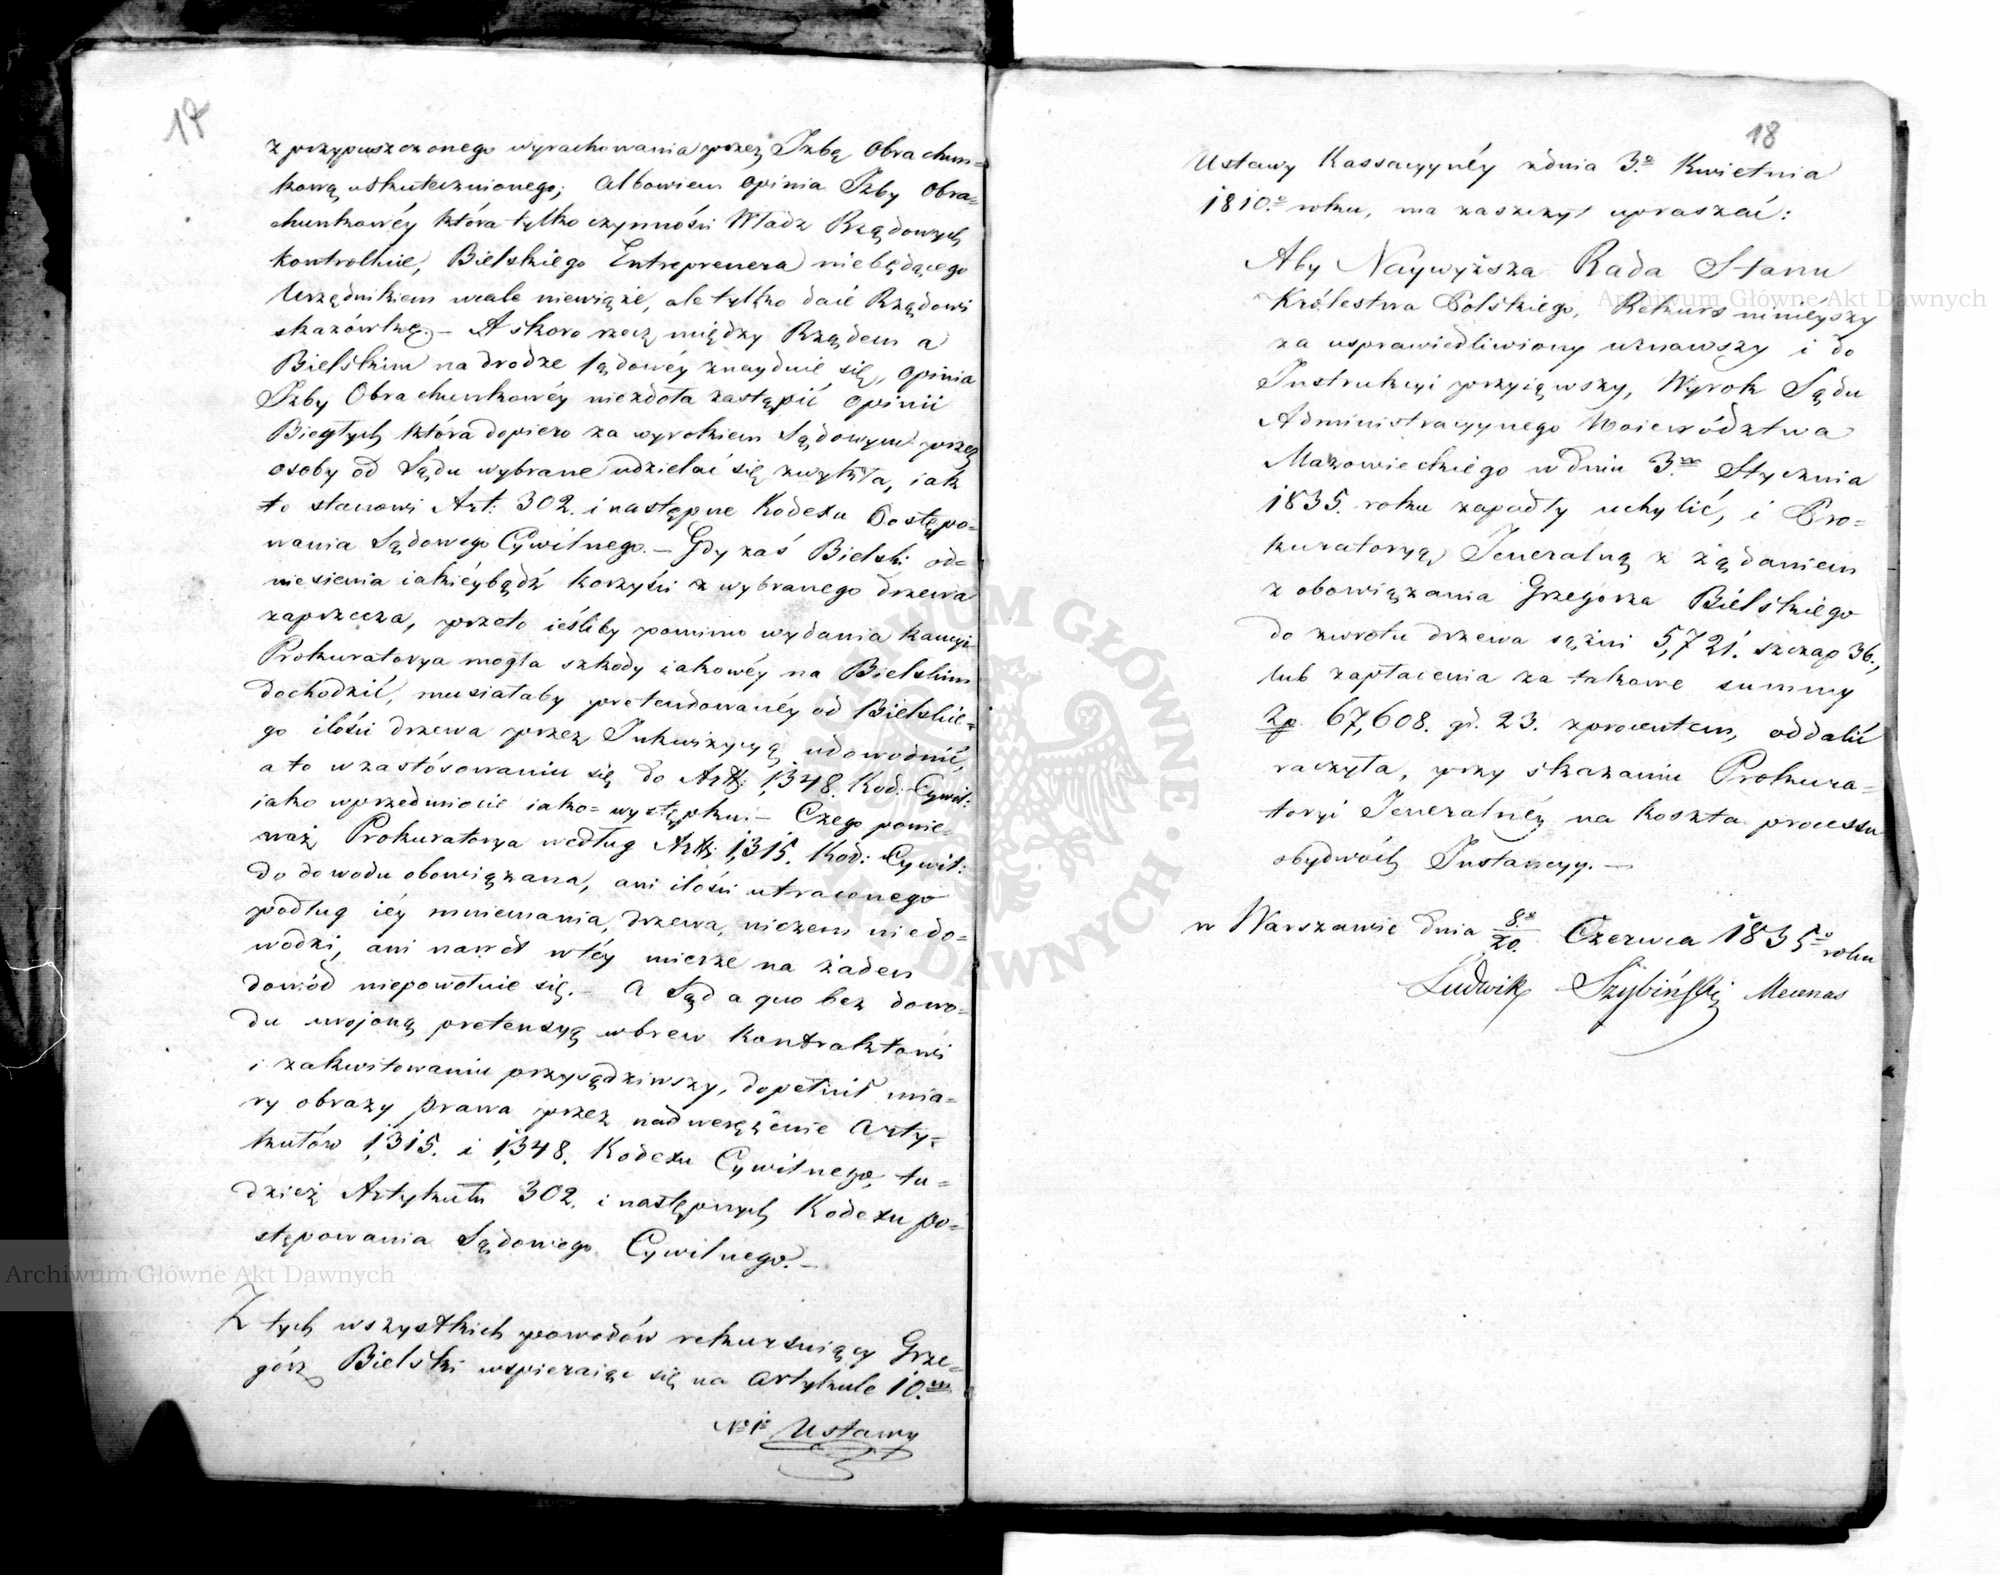 17
z przypuszczonego wyrachowania przez Izbę Obrachun=
kową uskutecznionego; Albowiem Opinia Izby Obra=
chunkowéy która tylko czynności Władz Rządowych
kontrolluie, Bielskiego Entreprenera niebędącego
Urzędnikiem wcale niewiąże, ale tylko daie Rządowi
skazówkę. – A skoro rzecz między Rządem a
Bielskim na drodze Sądowéy znayduie się, Opinia
Izby Obrachunkowéy niezdoła zastąpić Opinii
Biegłych która dopiero za wyrokiem Sądowym przez
osoby od Sądu wybrane udzielać się zwykła, iak
to stanowi Art: 302. i następne Kodexu Postępo=
wania Sądowego Cywilnego. – Gdy zaś Bielski od=
niesienia iakiéybądź korzyści z wybranego drzewa
zaprzecza, przeto ieśliby pomimo wydania kaucyi
Prokuratorya mogła szkody iakowéy na Bielskim
dochodzić, musiałaby pretendowanéy od Bielskie=
go ilości drzewa przez Inkwizycyą udowodnić,
a to w zastósowaniu się do Art: 1,348. Kod: Cywil:
iako w przedmiocie iako= występku. – Czego ponie=
waż Prokuratorya według Art: 1,315. Kod: Cywil:
do dowodu obowiązana, ani ilości utraconego
podług iéy mniemania, drzewa, niczem niedo=
wodzi, ani nawet w téy mierze na żaden
dowód niepowołuie się. – A Sąd a quo bez dowo=
du urojoną pretensyą wbrew Kontraktowi
i zakwitowaniu przysądziwszy, dopełnił mia=
ry obrazy prawa przez nadwerężenie Arty=
kułów 1,315. i 1,348. Kodexu Cywilnego, tu=
dzież Artykułu 302. i następnych Kodexu po=
stępowania Sądowego Cywilnego. –
Z tych wszystkich powodów rekursuiący Grze=
górz Bielski wspieraiąc się na Artykule 10.m
Nr 1o Ustawy
18
Ustawy Kassacyynéy z dnia 3.o Kwietnia
1810.o roku, ma zaszczyt upraszać:
Aby Naywyższa Rada Stanu
Królestwa Polskiego, Rekurs ninieyszy
za usprawiedliwiony uznawszy i do
Instrukcyi przyiąwszy, Wyrok Sądu
Administracyynego Woiewództwa
Mazowieckiego w dniu 3.m Stycznia
1835. roku zapadły uchylić, i Pro=
kuratoryą Jeneralną z żądaniem
z obowiązania Grzegórza Bielskiego
do zwrotu drzewa sążni 5,721. szczap 36.,
lub zapłacenia za takowe summy
Zp. 67,608. gr. 23. z procentem, oddalić
raczyła, przy skazaniu Prokura=
toryi Jeneralnéy na koszta processu
obydwóch Instancyy. –
w Warszawie dnia 8./20. Czerwca 1835o roku
Ludwik Szybiński Mecenas
Archiwum Główne Akt Dawnych
Archiwum Główne Akt Dawnych
ARCHIWUM GŁÓWNE AKT DAWNYCH